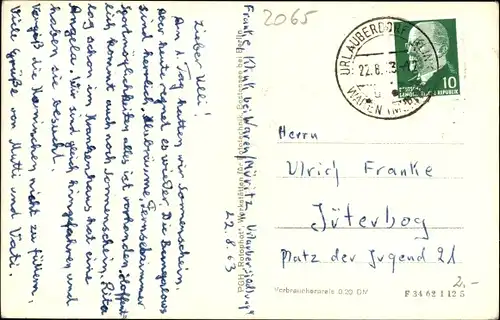 2065
Frank S, Klink bei Waren/Müritz, Urlaubersiedlung
22.8.63
Lieber Ulli!
Am 1. Tag hatten wir Sonnenschein.
Aber heute regnet es wieder. Die Bungalows
sind herrlich. Klubräume, Fernsehzimmer
Sportmöglichkeiten alles ist vorhanden. Hoffent-
lich kommt auch noch Sonnenschein. Rita
lag schon im Krankenhaus hat eine
Angela. Wir sind gleich hingefahren und
haben sie besucht.
Vergeß die Kaninchen nicht zu füttern,
Viele Grüße von Mutti und Vati.
URLAUBERDORF KLINK
22.8.63
WAREN (MÜRITZ)
10
DEUTSCHE
DEMOKRATISCHE REPUBLIK
Herrn
Ulrich Franke
Jüterbog
Platz der Jugend 21
2,-
Verbraucherpreis 0,20 DM
F 34 62 I 12 5